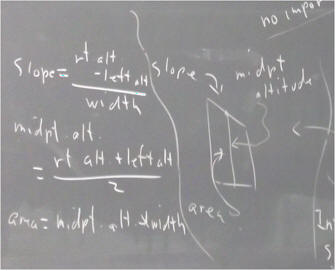 no impor
Slope = rt alt
- left alt
width
midpt. alt.
= rt alt + left alt
2
area = midpt. alt * width
Slope
midpt
altitude
area
In
s